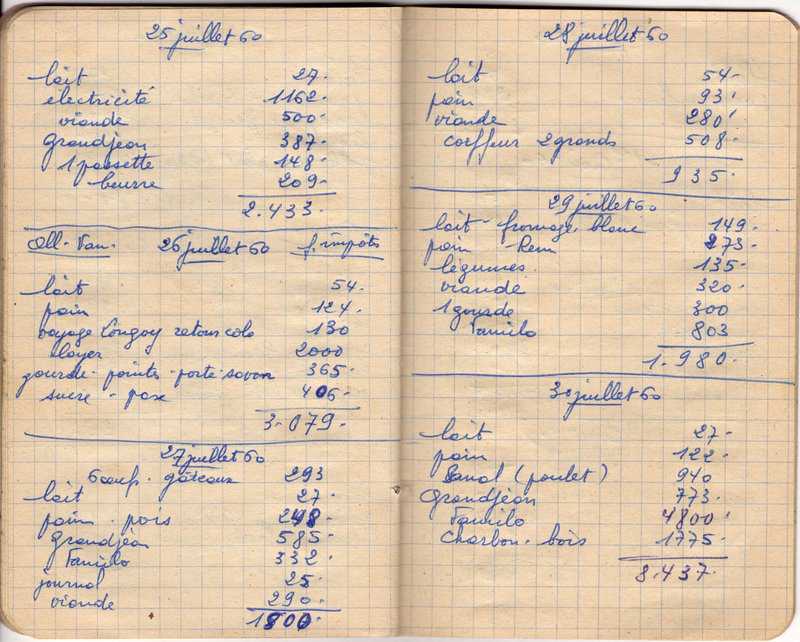 25 juillet 60
lait 27.
électricité 1162.
viande 500.
grandjean 387.
1 passette 148.
beurre 209.
2.433.
All. Fam. 26 juillet 60 f. impôts
lait 54.
pain 124.
voyage Longoy retour colo 130
loyer 2000
gourde. pointes. porte. savon 365.
sucre. 406.
3.079.
27 juillet 60
6 oeufs. gâteaux 293
lait 27.
pain. pois 248.
grandjean 585.
Familo 332.
journal 25.
viande 290.
1800.
28 juillet 60
lait 54.
pain 93.
viande 280.
coiffeur 2 grands 508.
935.
29 juillet 60
lait. fromage blanc 149.
pain 273.
légumes. 135.
viande 320.
1 gourde 300
Familo 803
1.980.
30 juillet 60
lait 27.
pain 122.
(poulet) 940
grandjean 773.
Familo 4800.
charbon. bois 1775.
8.437.